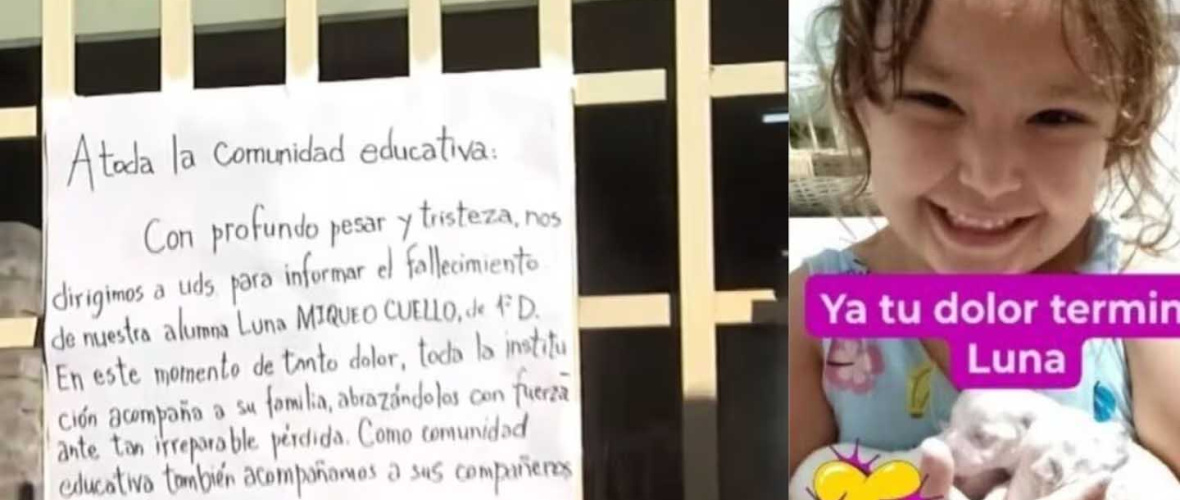 A toda la comunidad educativa:
Con profundo pesar y tristeza, nos
dirigimos a uds. para informar el fallecimiento
de nuestra alumna Luna MIQUEO CUELLO, de 1º D.
En este momento de tanto dolor, toda la institu
ción acompaña a su familia, abrazándolos con fuerza
ante tan irreparable pérdida. Como comunidad
educativa también acompañamos a sus compañeros
Ya tu dolor termin
Luna